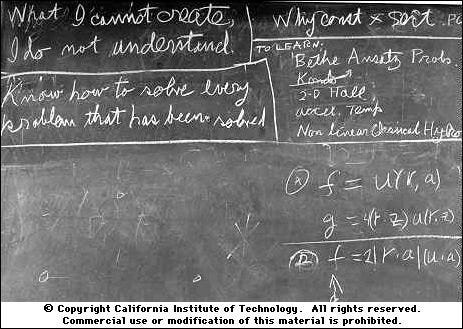 What I cannot create,
I do not understand.
Know how to solve every
problem that has been solved
Why const × sort . PO
TO LEARN:
Bethe Ansatz Probs.
Kondo
2-D Hall
accel. Temp
Non Linear Classical Hydro
Ⓐ f = U(r, a)
g = 4(r·z) u(r, z)
Ⓑ f = 2|r·a|(u·a)
© Copyright California Institute of Technology. All rights reserved.
Commercial use or modification of this material is prohibited.